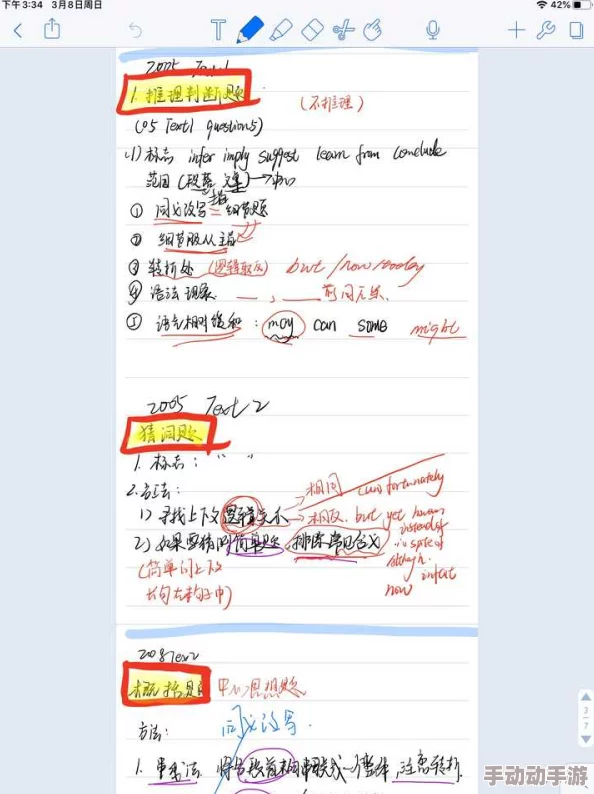 下午3:34 3月8日周日 42%
2005 Text 1
1. 推理判断题 (不推理)
(05 Text1 question5)
(1) 标志 infer imply suggest learn from conclude
范围 (段落 文章) → 中心
① 同义改写 = 细节题
② 细节服从主旨
③ 转折处 (逻辑取反) but / now / today
④ 语法现象
⑤ 语气相对缓和 : may can some might
2005 Text 2
猜词题
1. 标志: " "
2. 方法:
1) 寻找上下文逻辑关系 相同
相反. but yet however
unfortunately
instead of
in spite of
although
in fact
now
2) 如果要猜的简单题, 排除常见含义
(简单的上下文
长句在构子中)
Text 2
概括题 中心思想题
方法: 同义改写.
1. 串线法
3/7
手动动手游